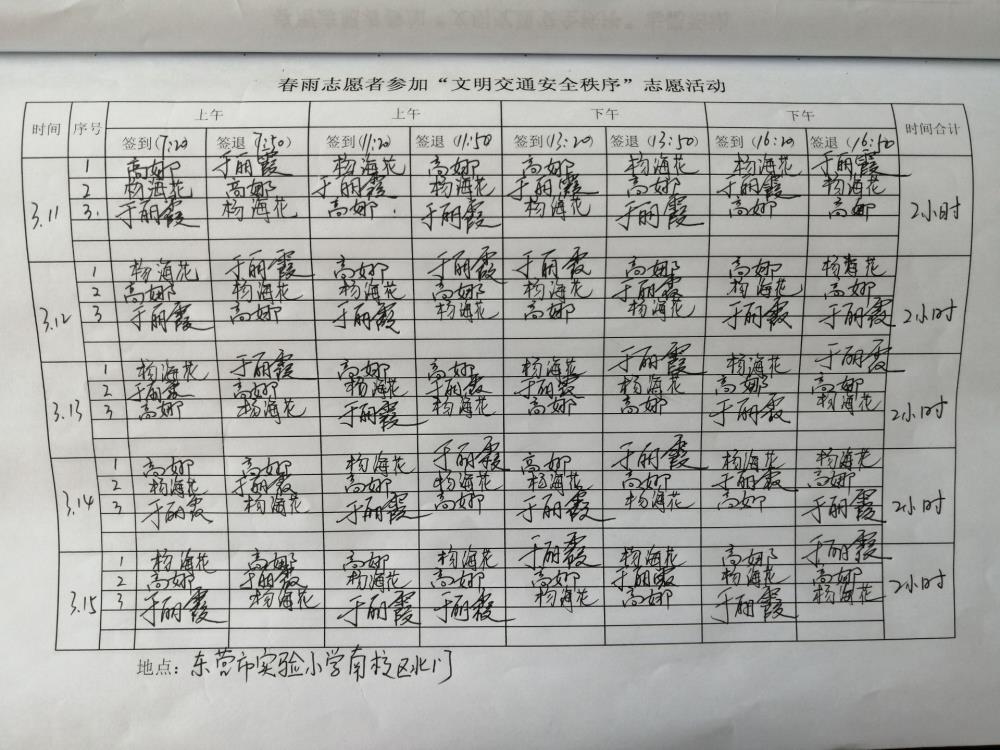 春雨志愿者参加“文明交通安全秩序”志愿活动
时间 序号 上午 上午 下午 下午 时间合计
签到(7:20) 签退(7:50) 签到(11:20) 签退(11:50) 签到(13:20) 签退(13:50) 签到(16:20) 签退(16:50)
3.11 2小时
1 高娜 于丽霞 杨海花 高娜 高娜 杨海花 杨海花 于丽霞
2 杨海花 高娜 于丽霞 杨海花 于丽霞 高娜 于丽霞 杨海花
3. 于丽霞 杨海花 高娜 于丽霞 杨海花 于丽霞 高娜 高娜
3.12 2小时
1 杨海花 于丽霞 高娜 于丽霞 于丽霞 高娜 高娜 杨海花
2 高娜 杨海花 杨海花 高娜 杨海花 于丽霞 杨海花 高娜
3 于丽霞 高娜 于丽霞 杨海花 高娜 杨海花 于丽霞 于丽霞
3.13 2小时
1 杨海花 于丽霞 高娜 高娜 杨海花 于丽霞 杨海花 于丽霞
2 于丽霞 高娜 杨海花 于丽霞 于丽霞 杨海花 高娜 高娜
3 高娜 杨海花 于丽霞 杨海花 高娜 高娜 于丽霞 杨海花
3.14 2小时
1 高娜 高娜 杨海花 于丽霞 高娜 于丽霞 杨海花 杨海花
2 杨海花 于丽霞 高娜 杨海花 杨海花 高娜 于丽霞 高娜
3 于丽霞 杨海花 于丽霞 高娜 于丽霞 杨海花 高娜 于丽霞
3.15 2小时
1 杨海花 高娜 高娜 杨海花 于丽霞 杨海花 高娜 于丽霞
2 高娜 于丽霞 杨海花 高娜 高娜 于丽霞 杨海花 高娜
3 于丽霞 杨海花 于丽霞 于丽霞 杨海花 高娜 于丽霞 杨海花
地点：东营市实验小学南校区北门